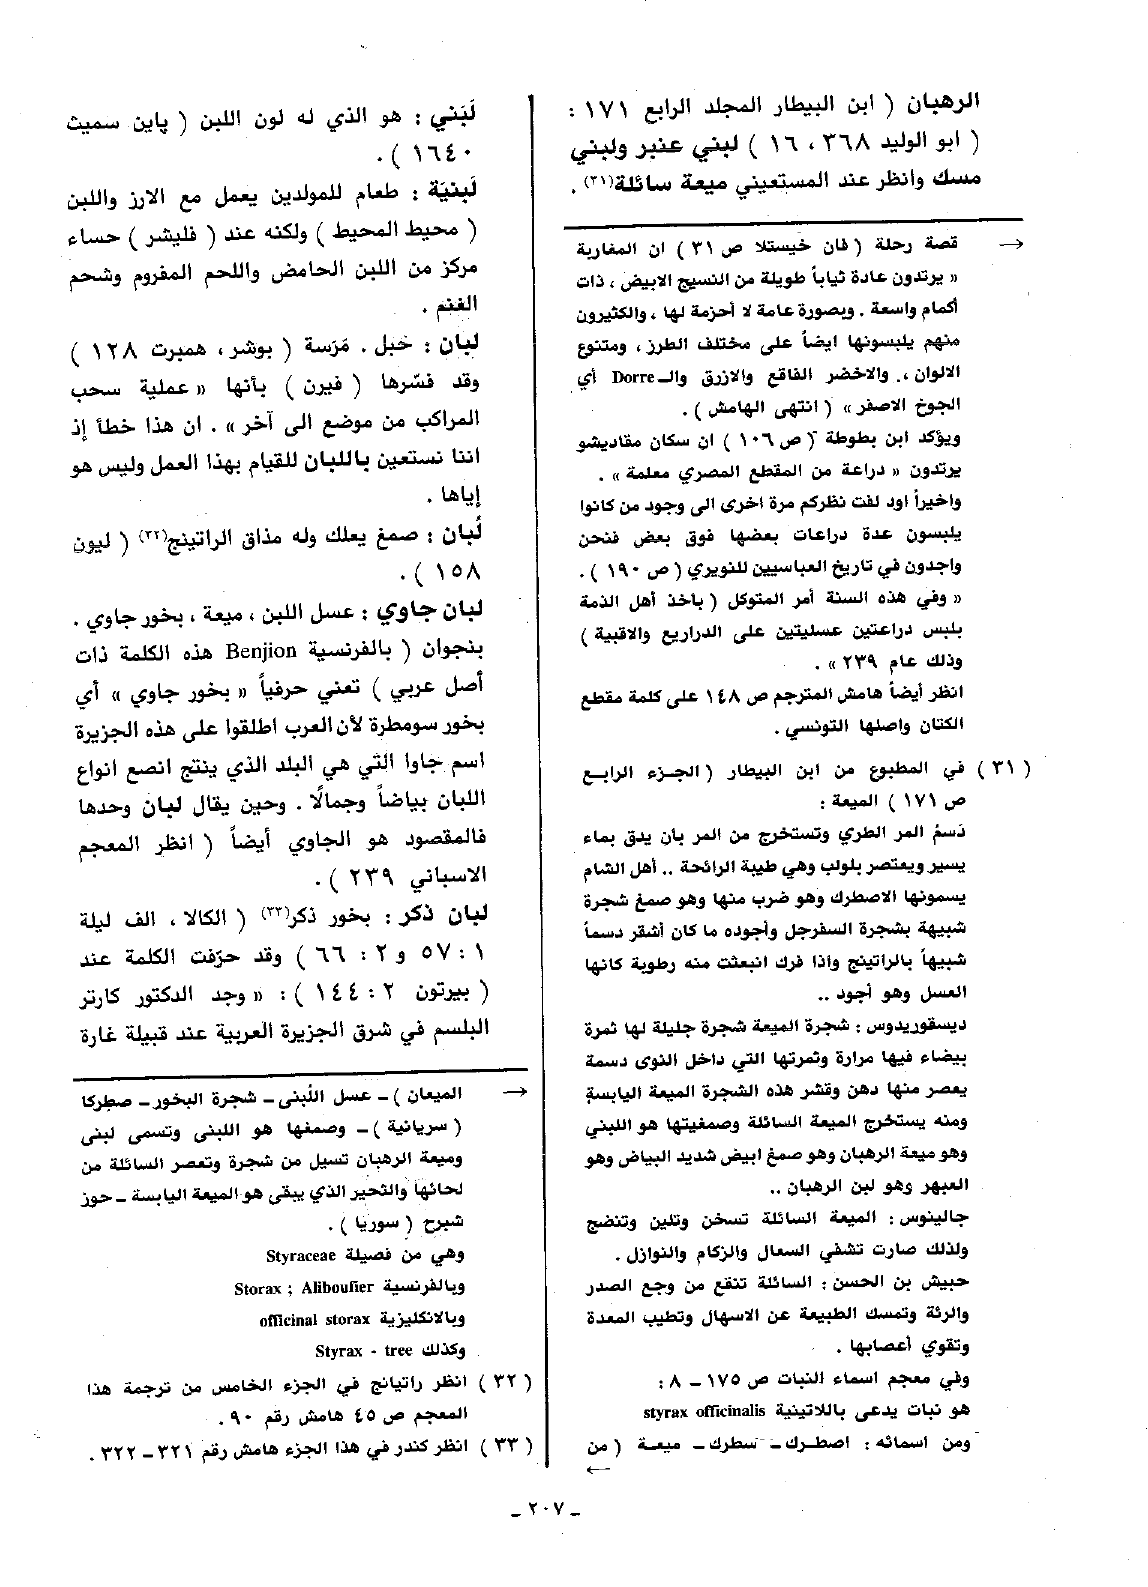 الرهبان ( ابن البيطار المجلد الرابع ١٧١ :
( ابو الوليد ٣٦٨ ، ١٦ ) لبني عنبر ولبني
مسك وانظر عند المستعيني ميعة سائلة(٣١) .
→ قصة رحلة ( فان خيستلا ص ٣١ ) ان المغاربة
« يرتدون عادة ثياباً طويلة من النسيج الابيض ، ذات
أكمام واسعة . وبصورة عامة لا أحزمة لها ، والكثيرون
منهم يلبسونها ايضاً على مختلف الطرز ، ومتنوع
الالوان ،. والاخضر الفاقع والازرق والـ Dorre أي
الجوخ الاصفر » ( انتهى الهامش ) .
ويؤكد ابن بطوطة ( ص ١٠٦ ) ان سكان مقاديشو
يرتدون « دراعة من المقطع المصري معلمة » .
واخيراً اود لفت نظركم مرة اخرى الى وجود من كانوا
يلبسون عدة دراعات بعضها فوق بعض فنحن
واجدون في تاريخ العباسيين للنويري ( ص ١٩٠ ) .
« وفي هذه السنة أمر المتوكل ( بأخذ أهل الذمة
بلبس دراعتين عسليتين على الدراريع والاقبية )
وذلك عام ٢٣٩ » .
انظر أيضاً هامش المترجم ص ١٤٨ على كلمة مقطع
الكتان واصلها التونسي .
( ٣١ ) في المطبوع من ابن البيطار ( الجزء الرابع
ص ١٧١ ) الميعة :
دَسَمُ المر الطري وتستخرج من المر بان يدق بماء
يسير ويعتصر بلولب وهي طيبة الرائحة .. أهل الشام
يسمونها الاصطرك وهو ضرب منها وهو صمغ شجرة
شبيهة بشجرة السفرجل وأجوده ما كان أشقر دسماً
شبيهاً بالراتينج واذا فرك انبعثت منه رطوبة كانها
العسل وهو أجود ..
ديسقوريدوس : شجرة الميعة شجرة جليلة لها ثمرة
بيضاء فيها مرارة وثمرتها التي داخل النوى دسمة
يعصر منها دهن وقشر هذه الشجرة الميعة اليابسة
ومنه يستخرج الميعة السائلة وصمغيتها هو اللبني
وهو ميعة الرهبان وهو صمغ ابيض شديد البياض وهو
العبهر وهو لبن الرهبان ..
جالينوس : الميعة السائلة تسخن وتلين وتنضج
ولذلك صارت تشفي السعال والزكام والنوازل .
حبيش بن الحسن : السائلة تنقع من وجع الصدر
والرئة وتمسك الطبيعة عن الاسهال وتطيب المعدة
وتقوي أعصابها .
وفي معجم اسماء النبات ص ١٧٥ - ٨ :
هو نبات يدعى باللاتينية styrax officinalis
ومن اسمائه : اصطرك - سطرك - ميعة ( من
←
لَبَني : هو الذي له لون اللبن ( پاين سميث
١٦٤٠ ) .
لَبَنيَة : طعام للمولدين يعمل مع الارز واللبن
( محيط المحيط ) ولكنه عند ( فليشر ) حساء
مركز من اللبن الحامض واللحم المفروم وشحم
الغنم .
لبان : حَبل . مَرَسة ( بوشر ، همبرت ١٢٨ )
وقد فسّرها ( فيرن ) بأنها « عملية سحب
المراكب من موضع الى آخر » . ان هذا خطأ إذ
اننا نستعين باللبان للقيام بهذا العمل وليس هو
إياها .
لُبان : صمغ يعلك وله مذاق الراتينج(٣٢) ( ليون
١٥٨ ) .
لبان جاوي : عسل اللبن ، ميعة ، بخور جاوي .
بنجوان ( بالفرنسية Benjion هذه الكلمة ذات
أصل عربي ) تعني حرفياً « بخور جاوي » أي
بخور سومطرة لأن العرب اطلقوا على هذه الجزيرة
اسم جاوا التي هي البلد الذي ينتج انصع انواع
اللبان بياضاً وجمالًا . وحين يقال لبان وحدها
فالمقصود هو الجاوي أيضاً ( انظر المعجم
الاسباني ٢٣٩ ) .
لبان ذكر : بخور ذكر(٣٣) ( الكالا ، الف ليلة
١ : ٥٧ و ٢ : ٦٦ ) وقد حرّفت الكلمة عند
( بيرتون ٢ : ١٤٤ ) : « وجد الدكتور كارتر
البلسم في شرق الجزيرة العربية عند قبيلة غارة
→ الميعان ) - عسل اللُبنى - شجرة البخور - صطركا
( سريانية ) - وصمغها هو اللبنى وتسمى لبنى
وميعة الرهبان تسيل من شجرة وتعصر السائلة من
لحائها والثجير الذي يبقى هو الميعة اليابسة - حوز
شبرح ( سوريا ) .
وهي من فصيلة Styraceae
وبالفرنسية Storax ; Aliboufier
وبالانكليزية officinal storax
وكذلك Styrax - tree
( ٣٢ ) انظر راتيانج في الجزء الخامس من ترجمة هذا
المعجم ص ٤٥ هامش رقم ٩٠ .
( ٣٣ ) انظر كندر في هذا الجزء هامش رقم ٣٢١ - ٣٢٢ .
- ٢٠٧ -